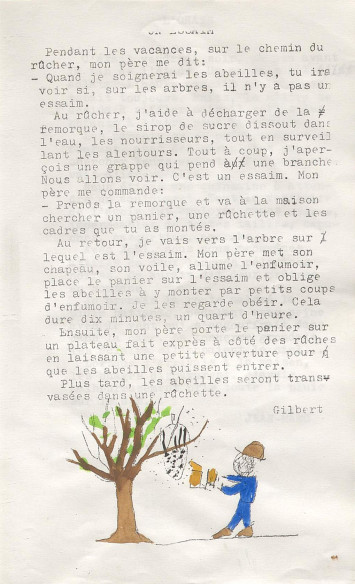 UN ESSAIM
Pendant les vacances, sur le chemin du
rûcher, mon père me dit:
- Quand je soignerai les abeilles, tu irs
voir si, sur les arbres, il n'y a pas un
essaim.
Au rûcher, j'aide à décharger de la
remorque, le sirop de sucre dissout dans
l'eau, les nourrisseurs, tout en surveil
lant les alentours. Tout à coup, j'aper-
çois une grappe qui pend à une branche.
Nous allons voir. C'est un essaim. Mon
père me commande:
- Prends la remorque et va à la maison
chercher un panier, une rûchette et les
cadres que tu as montés.
Au retour, je vais vers l'arbre sur
lequel est l'essaim. Mon père met son
chapeau, son voile, allume l'enfumoir,
place le panier sur l'essaim et oblige
les abeilles à y monter par petits coups
d'enfumoir. Je les regarde obéir. Cela
dure dix minutes, un quart d'heure.
Ensuite, mon père porte le panier sur
un plateau fait exprès à côté des rûches
en laissant une petite ouverture pour
que les abeilles puissent entrer.
Plus tard, les abeilles seront trans-
vasées dans une rûchette.
Gilbert